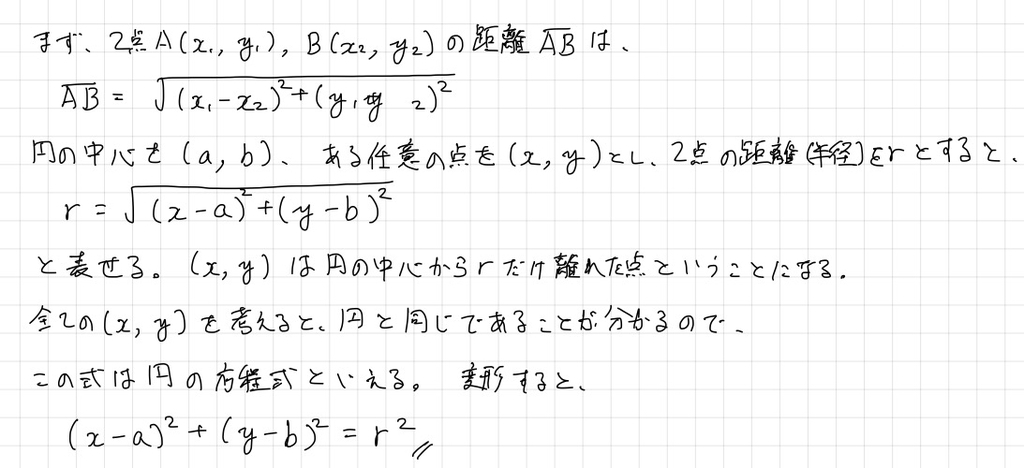 まず、2点A(x₁, y₁), B(x₂, y₂)の距離ABは、
AB = √(x₁-x₂)²+(y₁-y₂)²
円の中心を(a, b)、ある任意の点を(x, y)とし、2点の距離(半径)をrとすると、
r = √(x-a)²+(y-b)²
と表せる。(x, y)は円の中心からrだけ離れた点ということになる。
全ての(x, y)を考えると、円と同じであることが分かるので、
この式は円の方程式といえる。変形すると、
(x-a)²+(y-b)²=r²